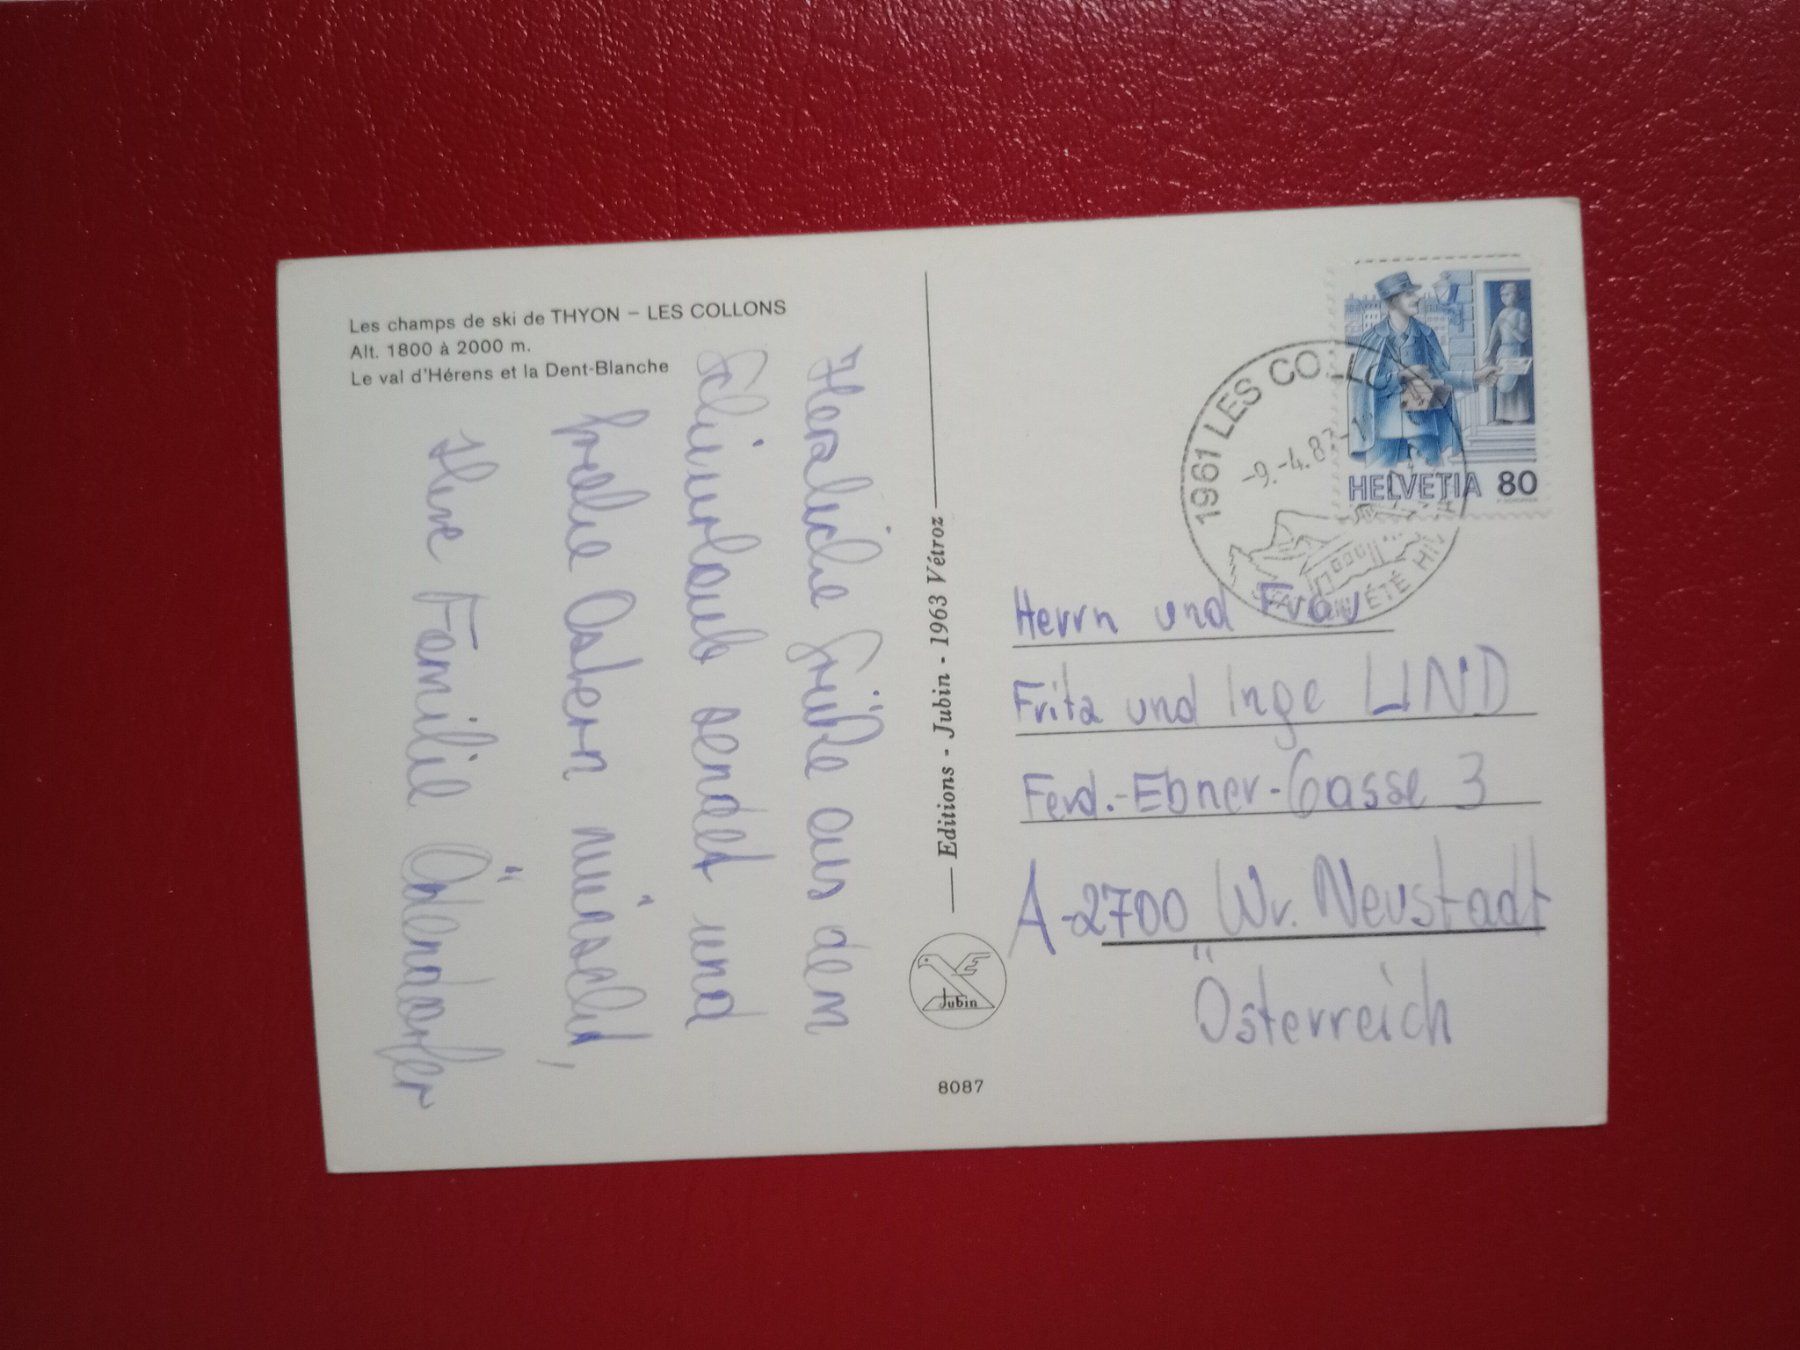 Les champs de ski de THYON – LES COLLONS
Alt. 1800 à 2000 m.
Le val d'Hérens et la Dent-Blanche
Herzliche Grüße aus dem
Schiurlaub sendet und
frohe Ostern wünscht,
Ihre Familie
Editions - Jubin - 1963 Vétroz
Jubin
8087
HELVETIA 80
1961 LES COLLONS
-9.-4.87-
ÉTÉ HIVER
Herrn und Frau
Fritz und Inge LIND
Ferd.-Ebner-Gasse 3
A-2700 Wr. Neustadt
Österreich